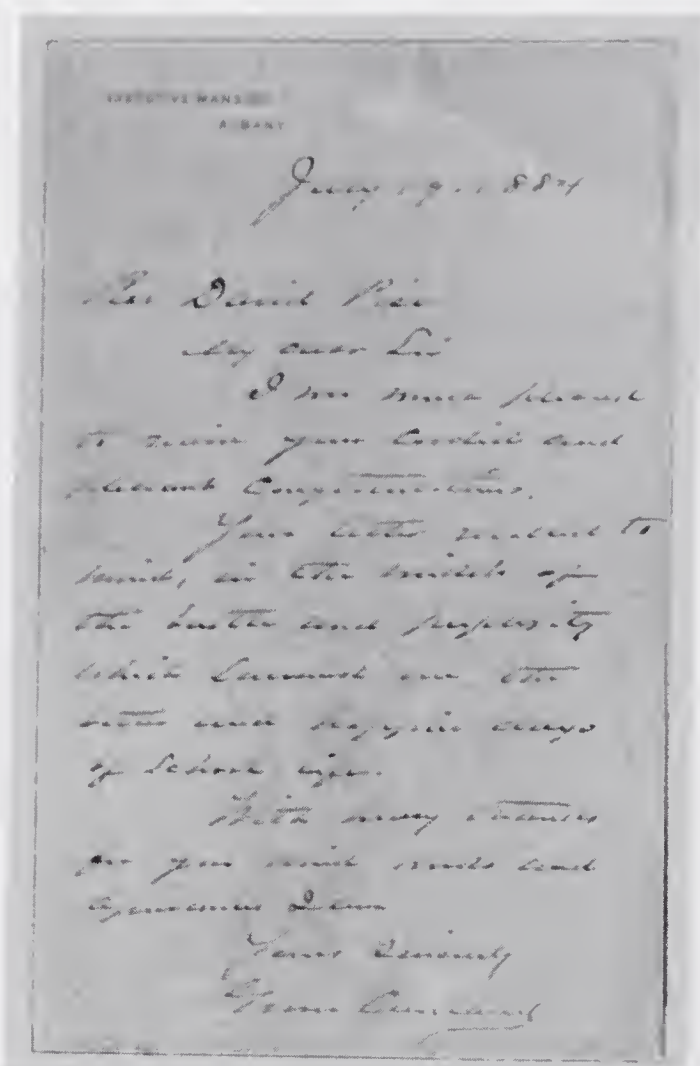 EXECUTIVE MANSION
ALBANY
July 19. 1884
David
My dear Sir
I am much pleased
to receive your cordial and
pleasant congratulations.
Your letter recalled to
mind, in the midst of
the bustle and perplexity
which surround me the
and happier days
of school life.
With many thanks
for your kind words and
generous
Yours Sincerely
Grover Cleveland